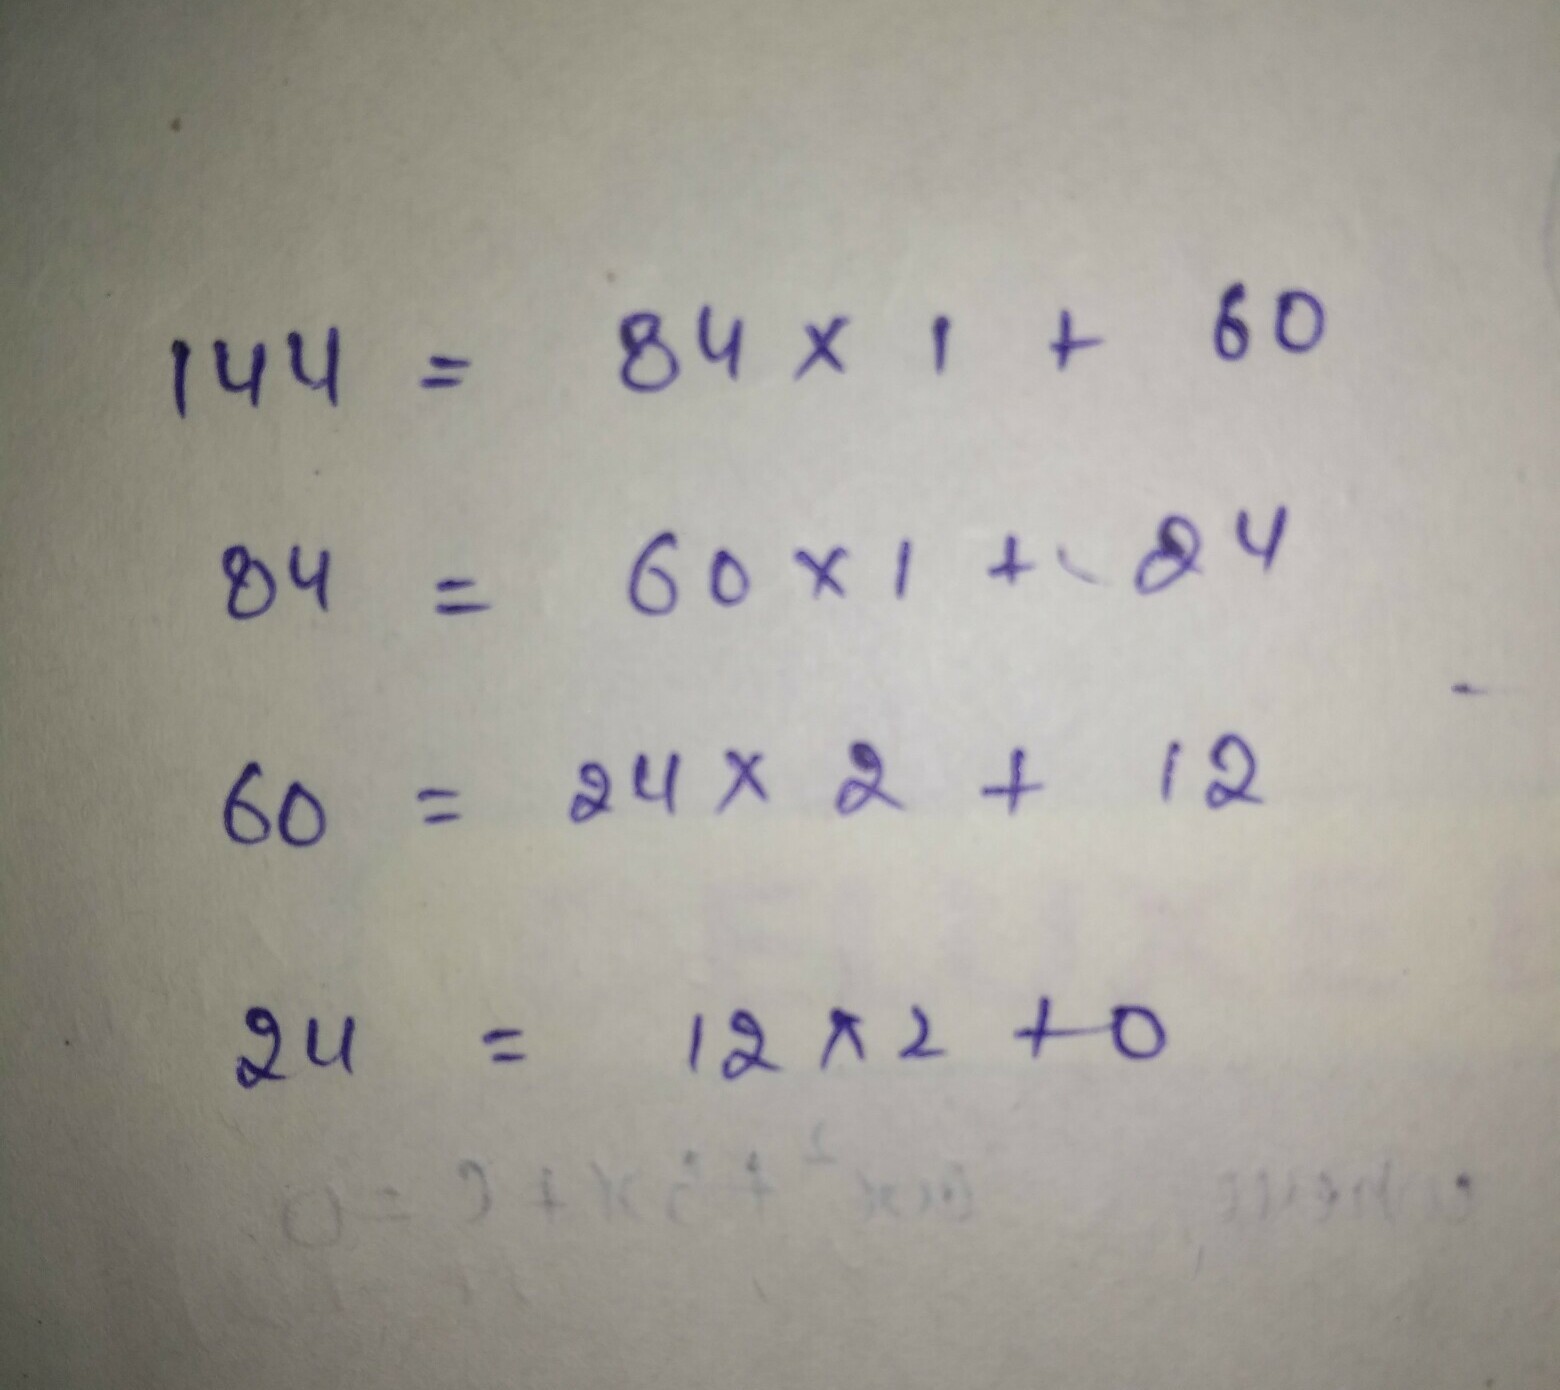 144 = 84 x 1 + 60
84 = 60 x 1 + 24
60 = 24 x 2 + 12
24 = 12 x 2 + 0